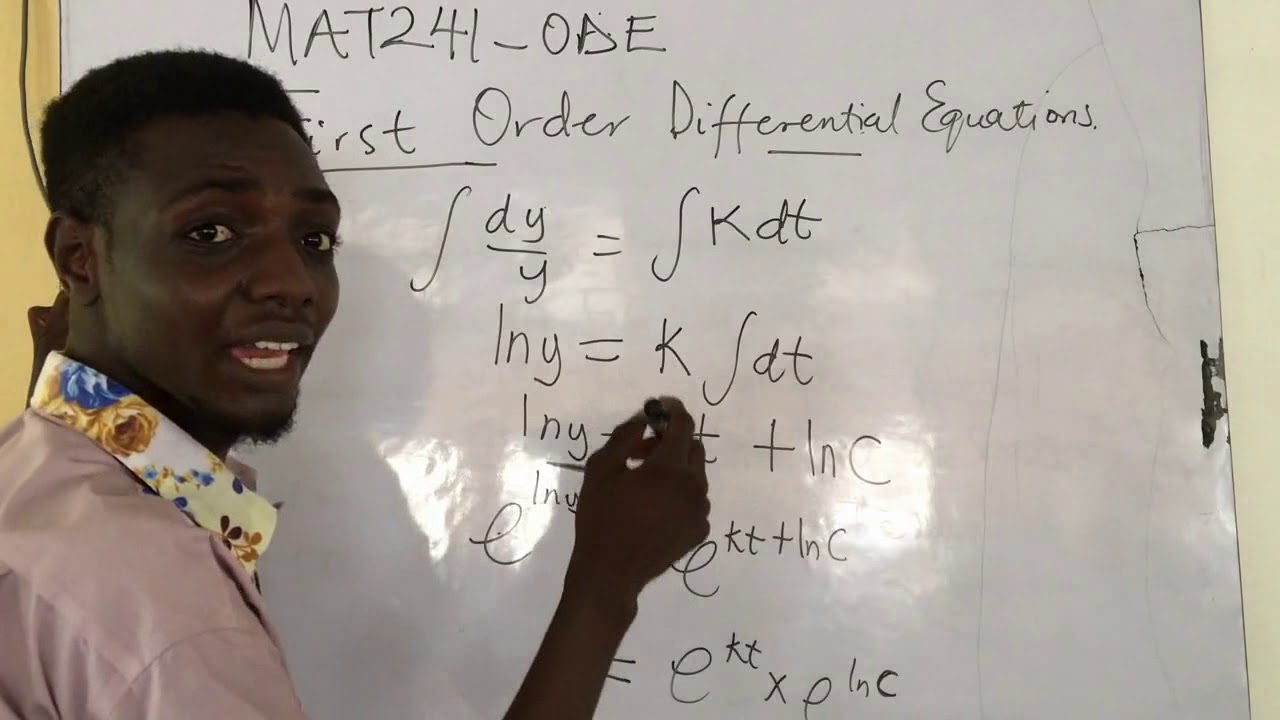 MAT241-ODE
First Order Differential Equations.
∫ dy/y = ∫ K dt
lny = K ∫ dt
lny = t + lnC
e^lny e^(kt+lnC)
= e^kt x e^lnC